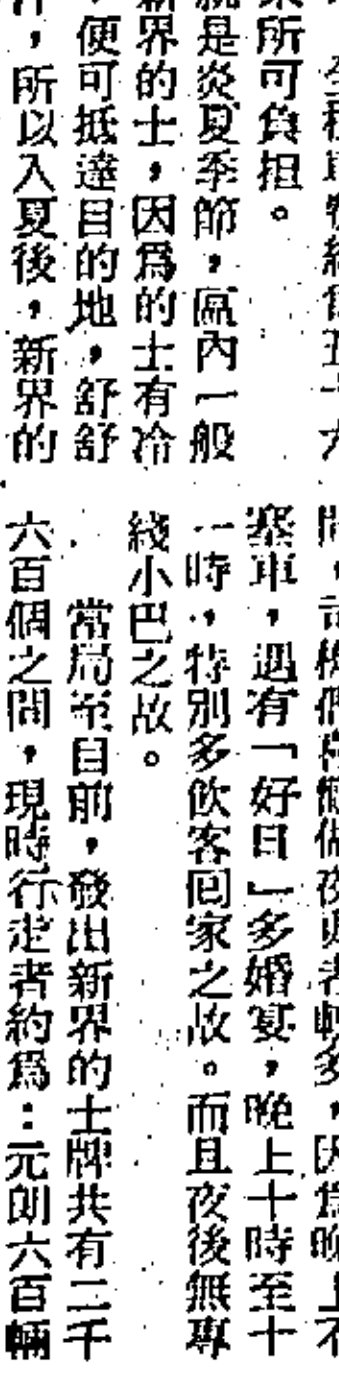 所可負担。
是炎夏季節，區內一般
界的士，因爲的士有冷
便可抵達目的地，舒舒
，所以入夏後，新界的
間，司機們喜歡做夜更者較多，因爲晚上不
塞車，遇有「好日」多婚宴，晚上十時至十
一時，特別多飲客回家之故。而且夜後無專
綫小巴之故。
當局至目前，發出新界的士牌共有二千
六百個之間，現時行走者約爲：元朗六百輛